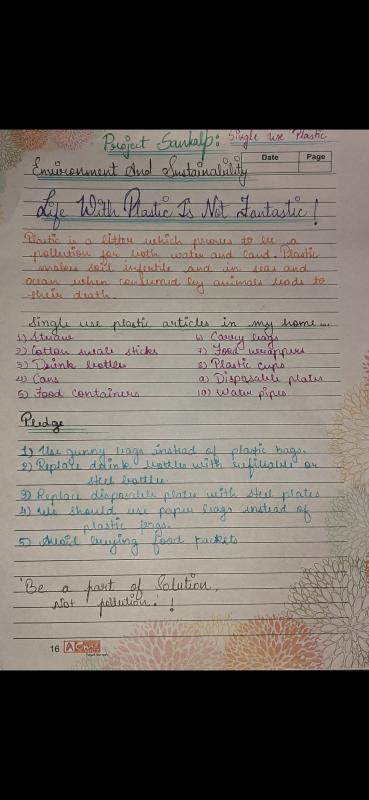 Project Sankalp: Single Use Plastic
Date Page
Environment And Sustainability
Life With Plastic Is Not Fantastic!
Plastic is a litter which proves to be a
pollution for both water and land. Plastic
makes soil infertile and in seas and
ocean when consumed by animals leads to
their death.
Single use plastic articles in my home...
1) Straw
2) Cotton swab sticks
3) Drink bottles
4) Cans
5) Food containers
6) Carry bags
7) Food wrappers
8) Plastic cups
9) Disposable plates
10) Water pipes
Pledge
1) Use gunny bags instead of plastic bags.
2) Replace drink bottles with refillable or
steel bottles.
3) Replace disposable plates with steel plates
4) We should use paper bags instead of
plastic bags.
5) Avoid buying food packets
'Be a part of Solution,
Not pollution.'!
16